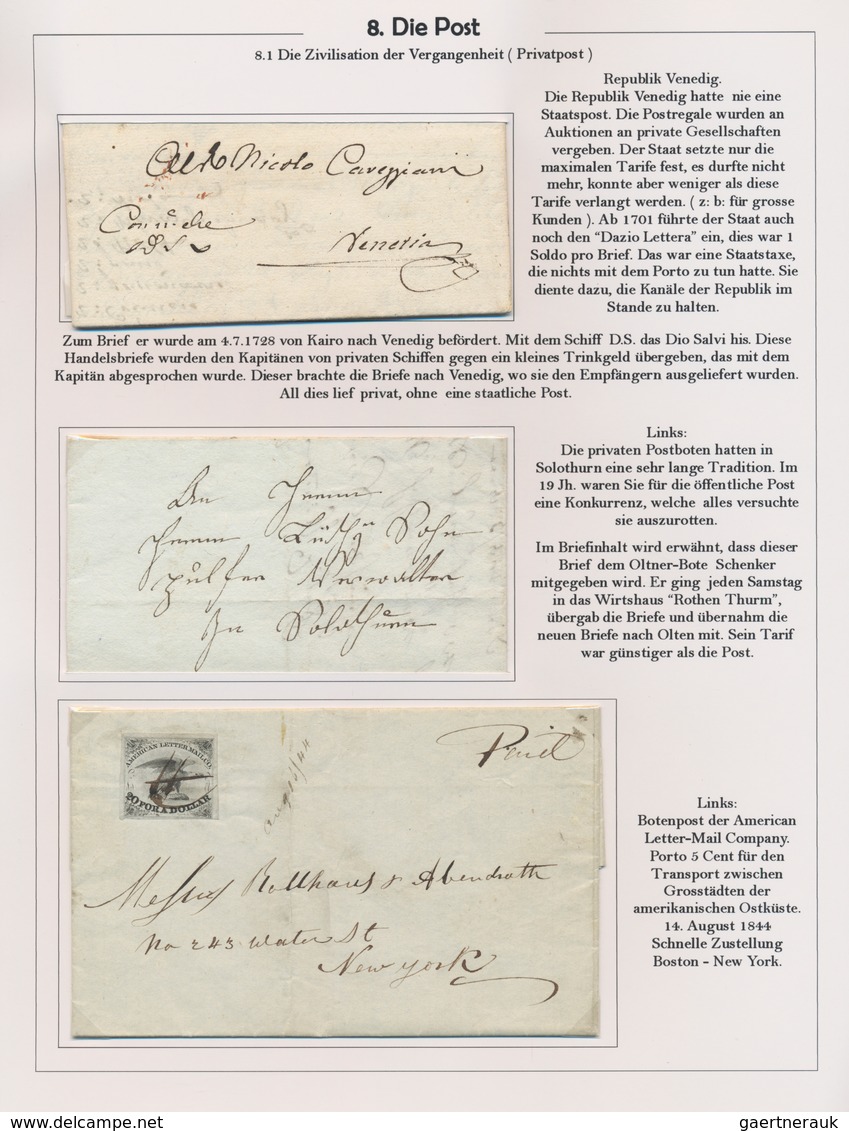 8. Die Post
8.1 Die Zivilisation der Vergangenheit ( Privatpost )
Republik Venedig.
Die Republik Venedig hatte nie eine
Staatspost. Die Postregale wurden an
Auktionen an private Gesellschaften
vergeben. Der Staat setzte nur die
maximalen Tarife fest, es durfte nicht
mehr, konnte aber weniger als diese
Tarife verlangt werden. ( z: b: für grosse
Kunden ). Ab 1701 führte der Staat auch
noch den "Dazio Lettera" ein, dies war 1
Soldo pro Brief. Das war eine Staatstaxe,
die nichts mit dem Porto zu tun hatte. Sie
diente dazu, die Kanäle der Republik im
Stande zu halten.
Nicolo
Venetia
Zum Brief er wurde am 4.7.1728 von Kairo nach Venedig befördert. Mit dem Schiff D.S. das Dio Salvi his. Diese
Handelsbriefe wurden den Kapitänen von privaten Schiffen gegen ein kleines Trinkgeld übergeben, das mit dem
Kapitän abgesprochen wurde. Dieser brachte die Briefe nach Venedig, wo sie den Empfängern ausgeliefert wurden.
All dies lief privat, ohne eine staatliche Post.
Links:
Die privaten Postboten hatten in
Solothurn eine sehr lange Tradition. Im
19 Jh. waren Sie für die öffentliche Post
eine Konkurrenz, welche alles versuchte
sie auszurotten.
Im Briefinhalt wird erwähnt, dass dieser
Brief dem Oltner-Bote Schenker
mitgegeben wird. Er ging jeden Samstag
in das Wirtshaus "Rothen Thurm",
übergab die Briefe und übernahm die
neuen Briefe nach Olten mit. Sein Tarif
war günstiger als die Post.
An Herrn
Herrn Sohn
Verwalter
In Solothurn
AMERICAN LETTER MAIL CO.
20 FOR A DOLLAR
Paid
Aug 15/44
Messrs Rollhaus & Abendroth
No 243 Water St
New york
Links:
Botenpost der American
Letter-Mail Company.
Porto 5 Cent für den
Transport zwischen
Grosstädten der
amerikanischen Ostküste.
14. August 1844
Schnelle Zustellung
Boston - New York.
www.delcampe.net
gaertnerauk